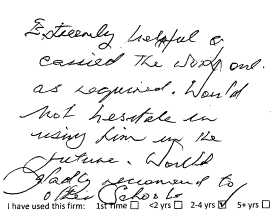 Extremely helpful &
carried the work out
as required. Would
not hesitate in
using him in the
future. Would
gladly recommend to
other schools
I have used this firm: 1st Time ☐ <2 yrs ☐ 2-4 yrs ☑ 5+ yrs ☐